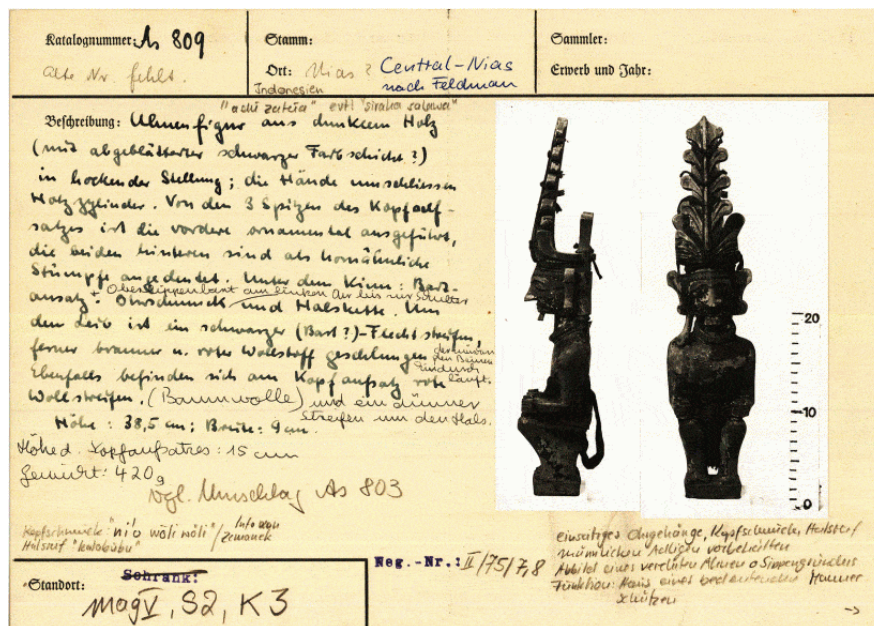 Katalognummer: As 809
alte Nr. fehlt.
Stamm:
Ort: Nias? Central-Nias
nach Feldman
Indonesien
Sammler:
Erwerb und Jahr:
"adu zatua" evtl "siraha salawa"
Beschreibung: Ahnenfigur aus dunklem Holz
(mit abgeblätterter schwarzer Farbschicht?)
in hockender Stellung; die Hände umschliessen
Holzzylinder. Von den 3 Spitzen des Kopfauf-
satzes ist die vordere ornamental ausgeführt,
die beiden hinteren sind als hornähnliche
Stümpfe angedeutet. Unter dem Kinn: Bart-
+ Oberlippenbart am linken Ohr bis zur Schulter
ansatz. Ohrschmuck und Halskette. Um
den Leib ist ein schwarzer (Bast?)-Flechtstreifen,
ferner brauner u. roter Wollstoff geschlungen
der den Beinen
hindurch
läuft.
Ebenfalls befinden sich am Kopfaufsatz rote
Wollstreifen. (Baumwolle) und ein dünner
Streifen um den Hals.
Höhe: 38,5 cm; Breite: 9 cm.
Höhe d. Kopfaufsatzes: 15 cm
Gewicht: 420g
Vgl. Umschlag As 803
Kopfschmuck "ni'o wöli wöli" / Info von
Zemanek
Halsreif "kalabubu"
20
10
0
einseitiges Ohrgehänge, Kopfschmuck, Halsreif
männlichen Adligen vorbehalten
Abbild eines verehrten Ahnen o Sippengründers
Funktion: Haus eines bedeutenden Mannes
schützen
->
Neg.-Nr.: II/75/7,8
Schrank:
Standort:
Mag V, S2, K3